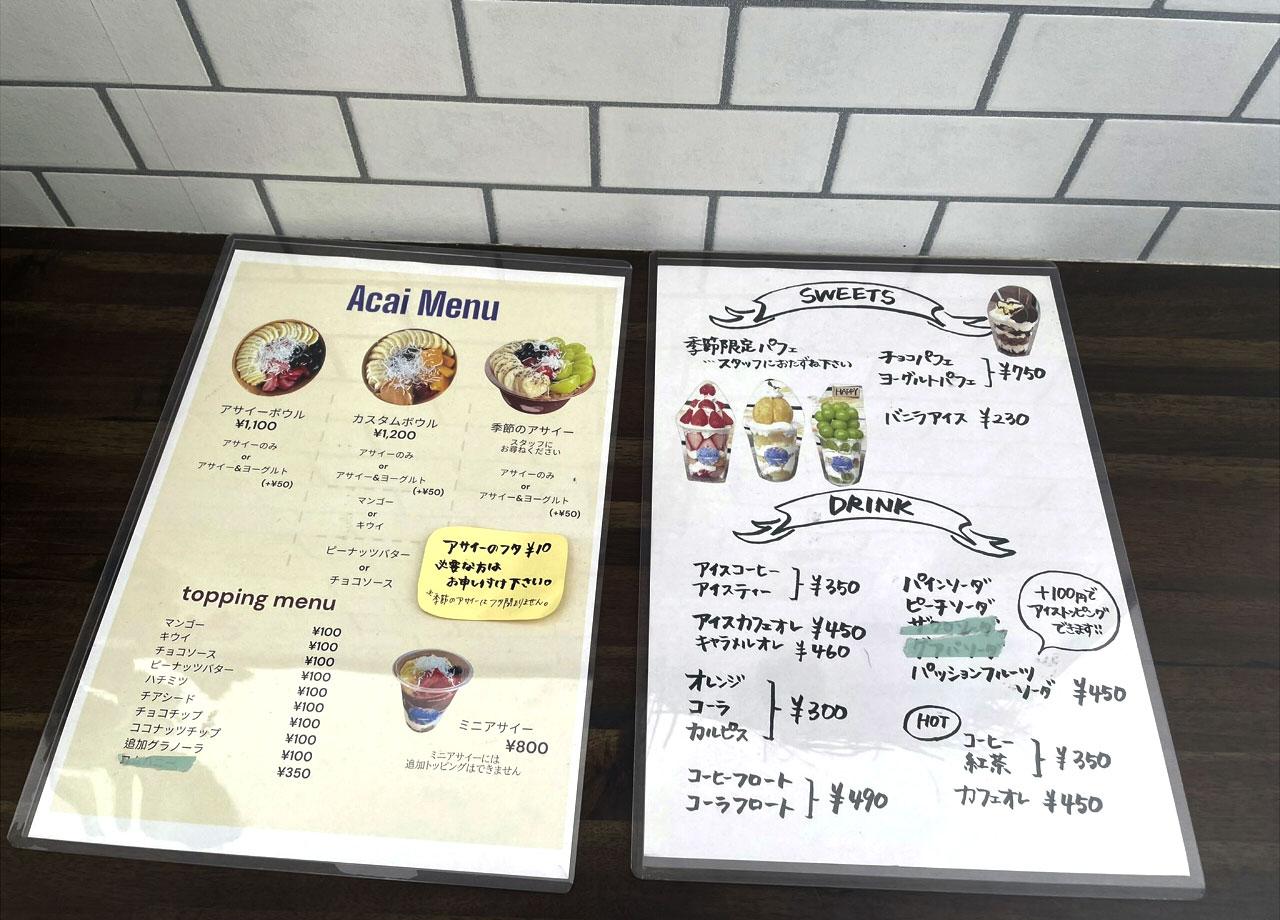 Acai Menu
アサイーボウル
¥1,100
アサイーのみ
or
アサイー&ヨーグルト
(+¥50)
カスタムボウル
¥1,200
アサイーのみ
or
アサイー&ヨーグルト
(+¥50)
マンゴー
or
キウイ
ピーナッツバター
or
チョコソース
季節のアサイー
スタッフに
お尋ねください
アサイーのみ
or
アサイー&ヨーグルト
(+¥50)
アサイーのフタ ¥10
必要な方は
お申し付け下さい。
※季節のアサイーにフタ閉まりません。
topping menu
マンゴー ¥100
キウイ ¥100
チョコソース ¥100
ピーナッツバター ¥100
ハチミツ ¥100
チアシード ¥100
チョコチップ ¥100
ココナッツチップ ¥100
追加グラノーラ ¥100
¥350
ミニアサイー
¥800
ミニアサイーには
追加トッピングはできません
SWEETS
季節限定パフェ
…スタッフにおたずね下さい
チョコパフェ
ヨーグルトパフェ ¥750
バニラアイス ¥230
HAPPY
DRINK
アイスコーヒー
アイスティー ¥350
アイスカフェオレ ¥450
キャラメルオレ ¥460
オレンジ
コーラ ¥300
カルピス
コーヒーフロート
コーラフロート ¥490
パインソーダ
ピーチソーダ
ザクロソーダ
グアバソーダ
パッションフルーツ
ソーダ ¥450
+100円で
アイストッピング
できます!!
HOT
コーヒー
紅茶 ¥350
カフェオレ ¥450